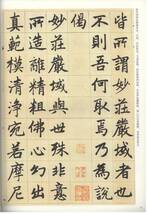 皆所謂妙莊嚴域者也
不則吾何取焉乃為說
偈
妙莊嚴域與世殊非意
所造離精粗佛心幻出
真範模清淨宛若摩尼